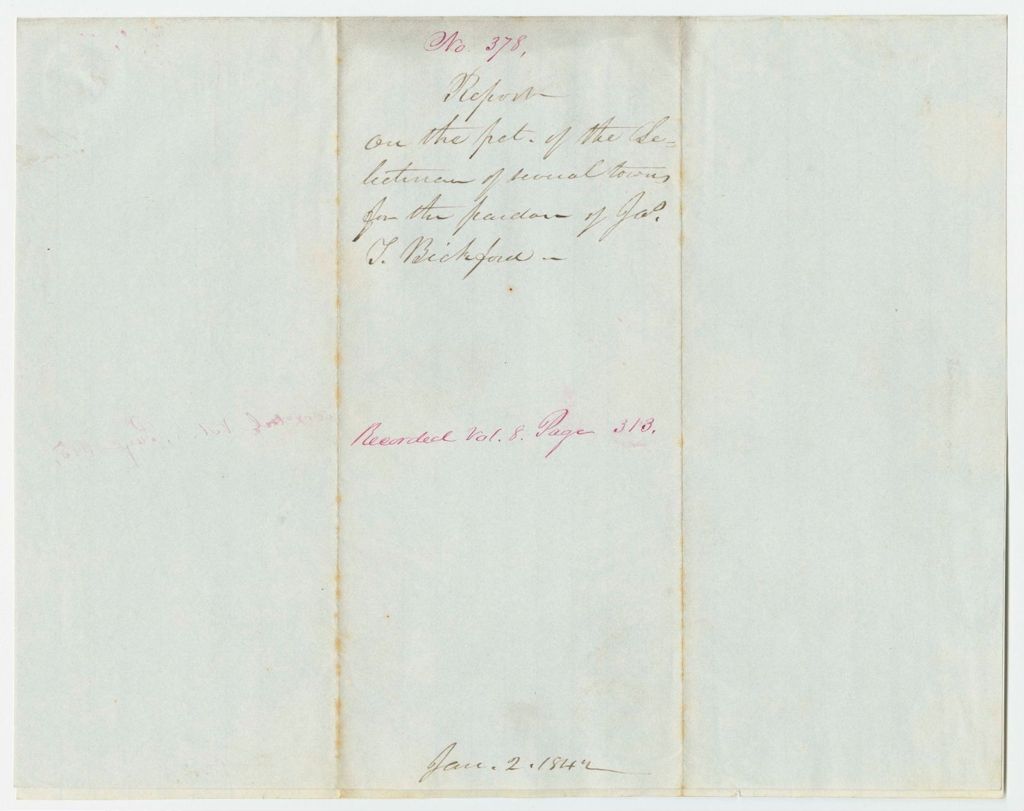 No. 378,
Report
on the pet. of the Se=
lectmen of several towns
for the pardon of Jas.
T. Bickford -
Recorded Vol. 8. Page 313.
Jan. 2. 1842